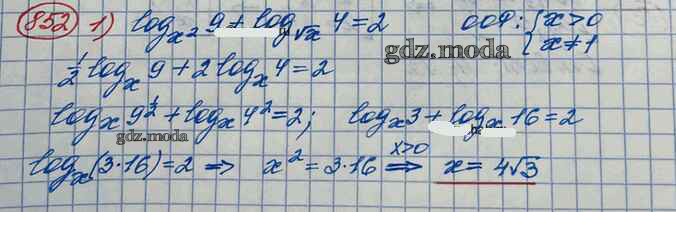 852 1) log_{x²} 9 + log_{√x} 4 = 2 ООФ: { x > 0
x ≠ 1
gdz.moda
½ log_x 9 + 2 log_x 4 = 2
log_x 9^{½} + log_x 4² = 2; log_x 3 + log_x 16 = 2
gdz.moda
log_x (3·16) = 2 ⇒ x² = 3·16 ⇒ x>0 x = 4√3